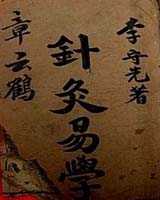 李守先著
針灸易學
章云鶴